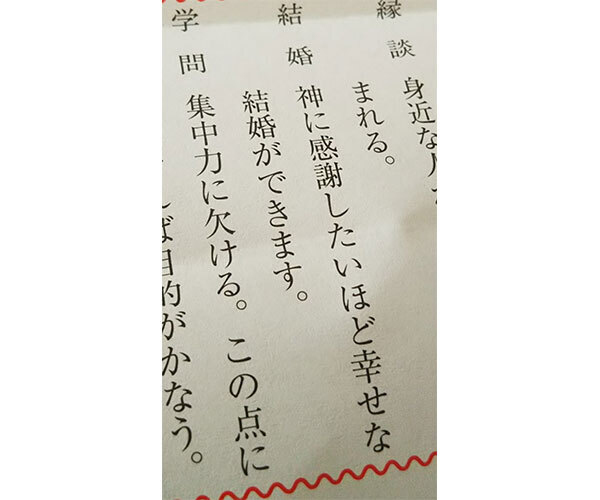 縁談 身近な人
まれる。
結婚 神に感謝したいほど幸せな
結婚ができます。
学問 集中力に欠ける。この点に
ば目的がかなう。